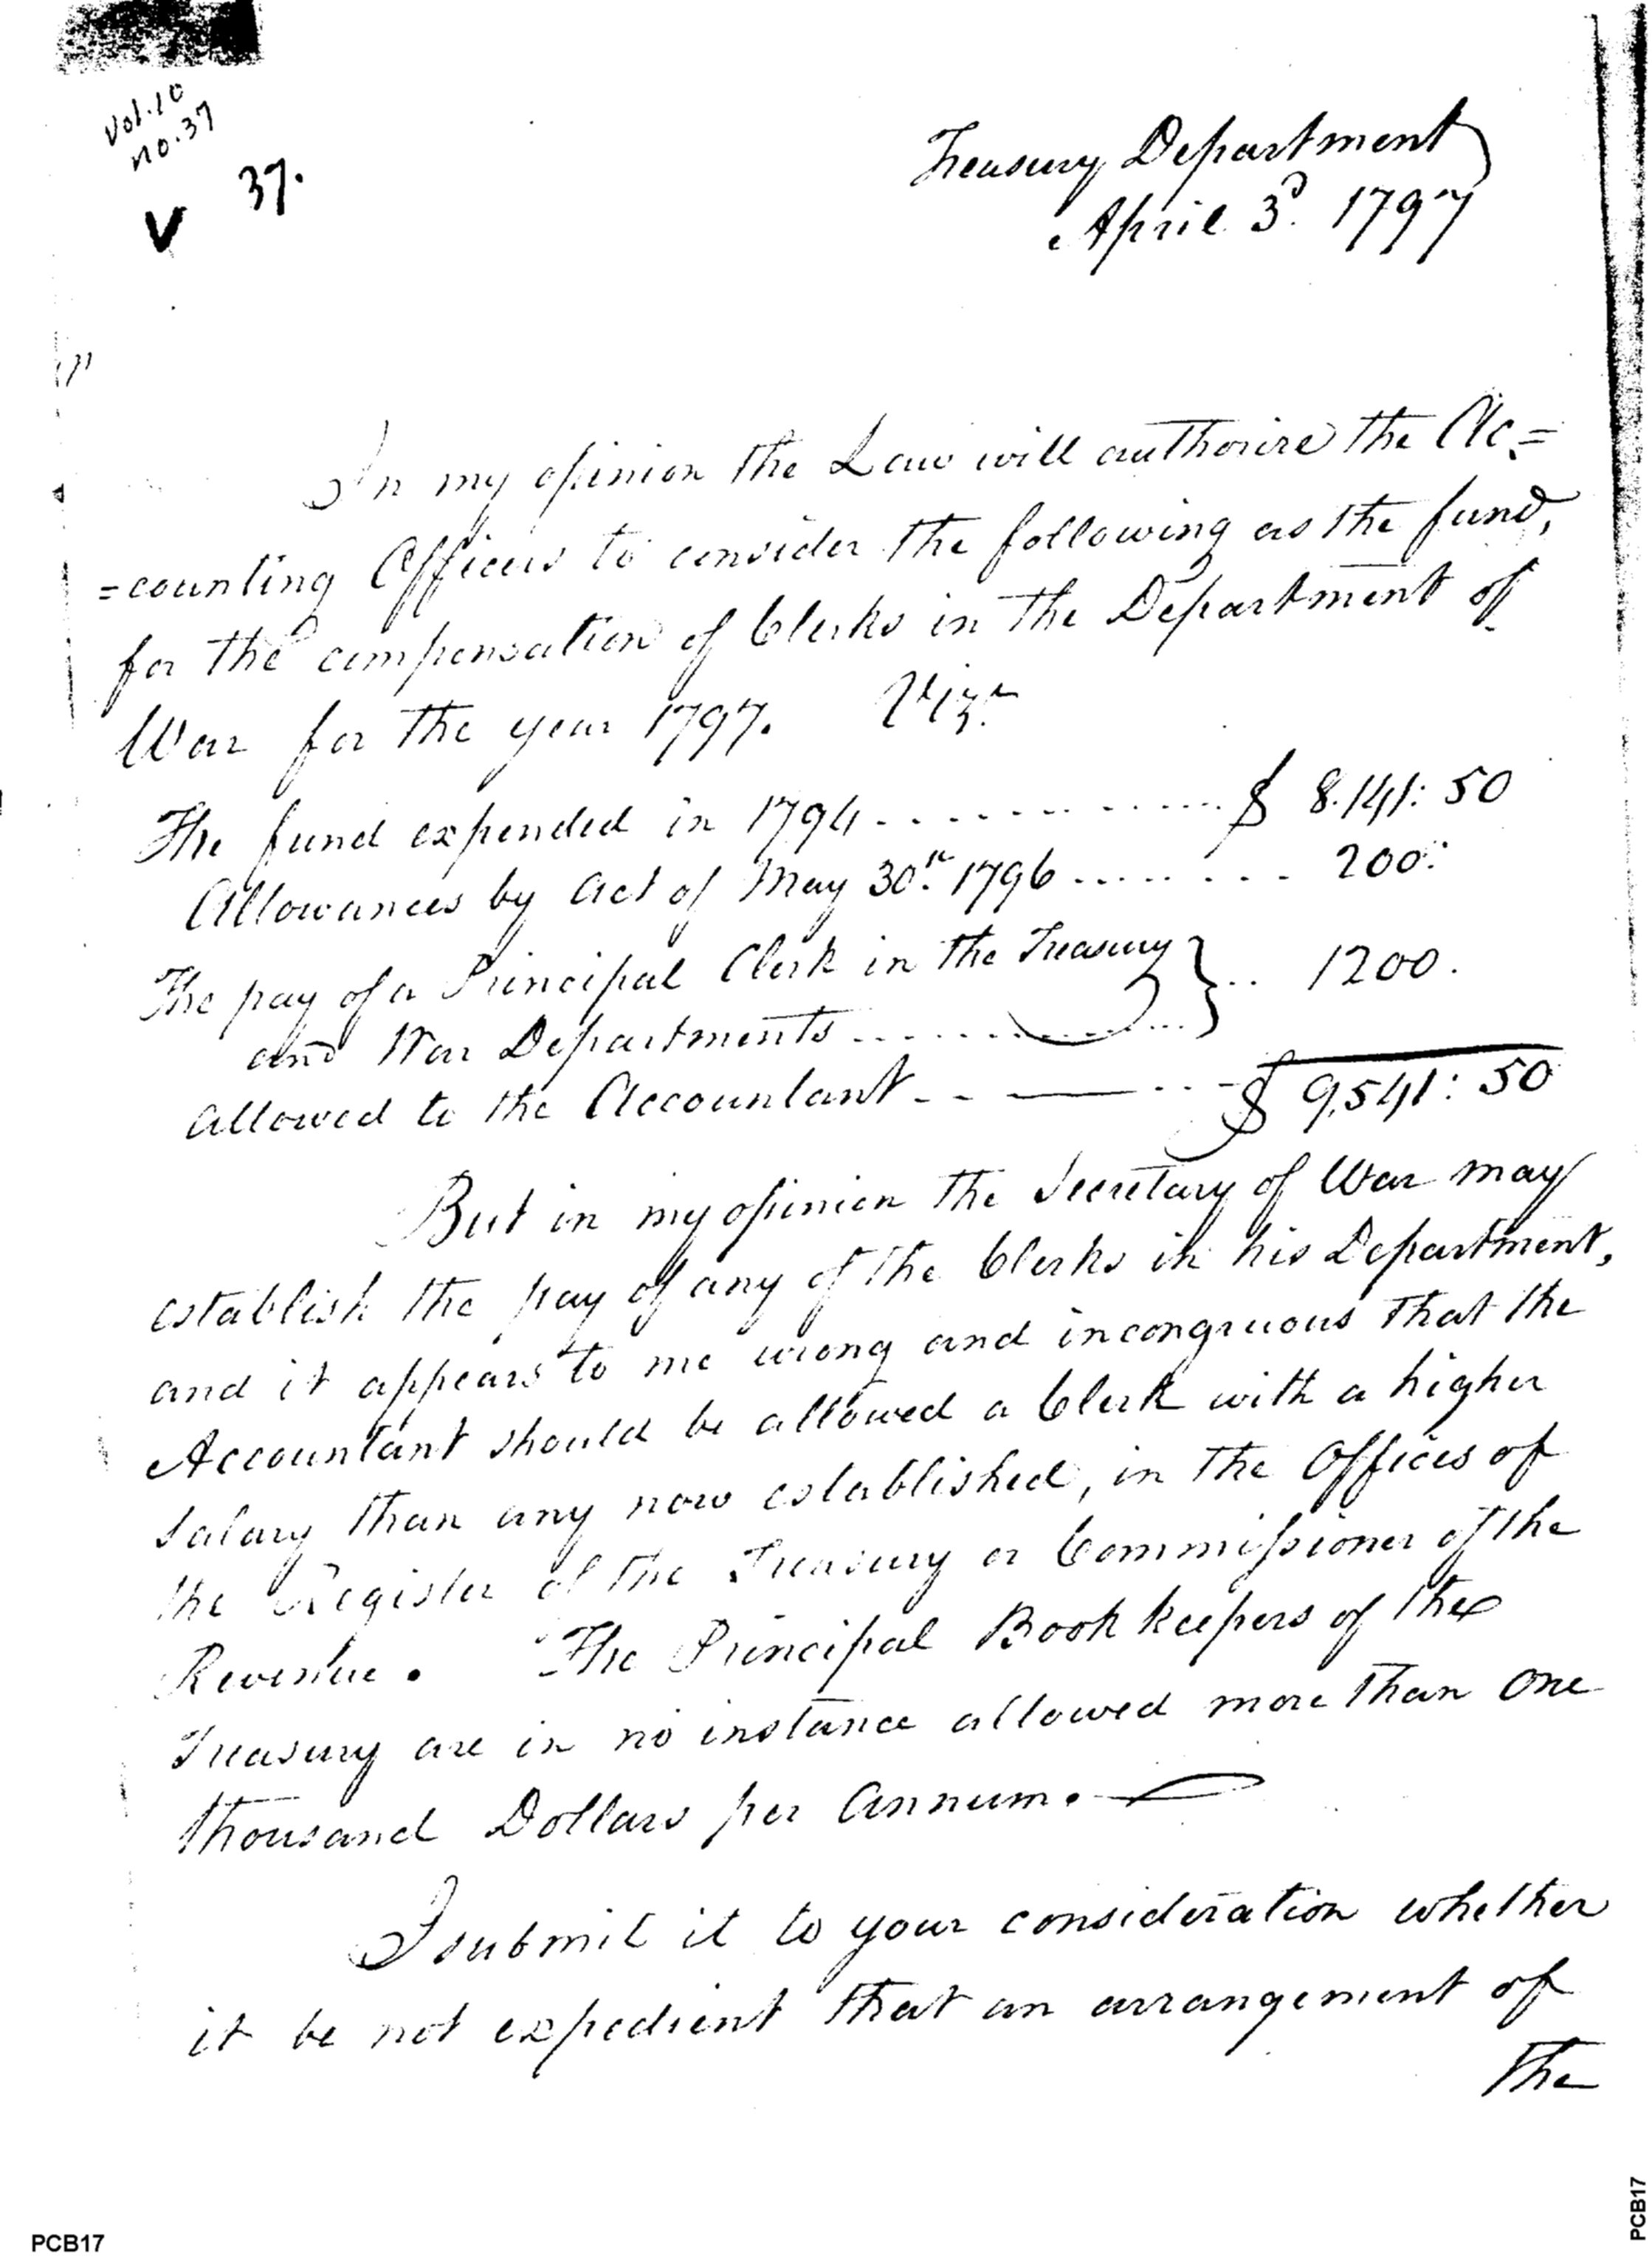 Vol. 10
no. 37
V 37.
Treasury Department
April 3d. 1797
In my opinion the Law will authorize the Ac=
=counting Officers to consider the following as the fund,
for the compensation of Clerks in the Department of
War for the year 1797. Vizt.
The fund expended in 1794 ............ $ 8.141: 50
Allowances by Act of May 30th. 1796 ........ 200:
The pay of a Principal Clerk in the Treasury } .. 1200.
and War Departments ............
allowed to the Accountant -- — --- $ 9,541: 50
But in my opinion the Secretary of War may
establish the pay of any of the Clerks in his Department,
and it appears to me wrong and incongruous that the
Accountant should be allowed a Clerk with a higher
Salary than any now established, in the Offices of
the Register of the Treasury or Commissioner of the
Revenue. The Principal Book keepers of the
Treasury are in no instance allowed more than One
thousand Dollars per Annum.
I submit it to your consideration whether
it be not expedient that an arrangement of
the
PCB17
PCB17